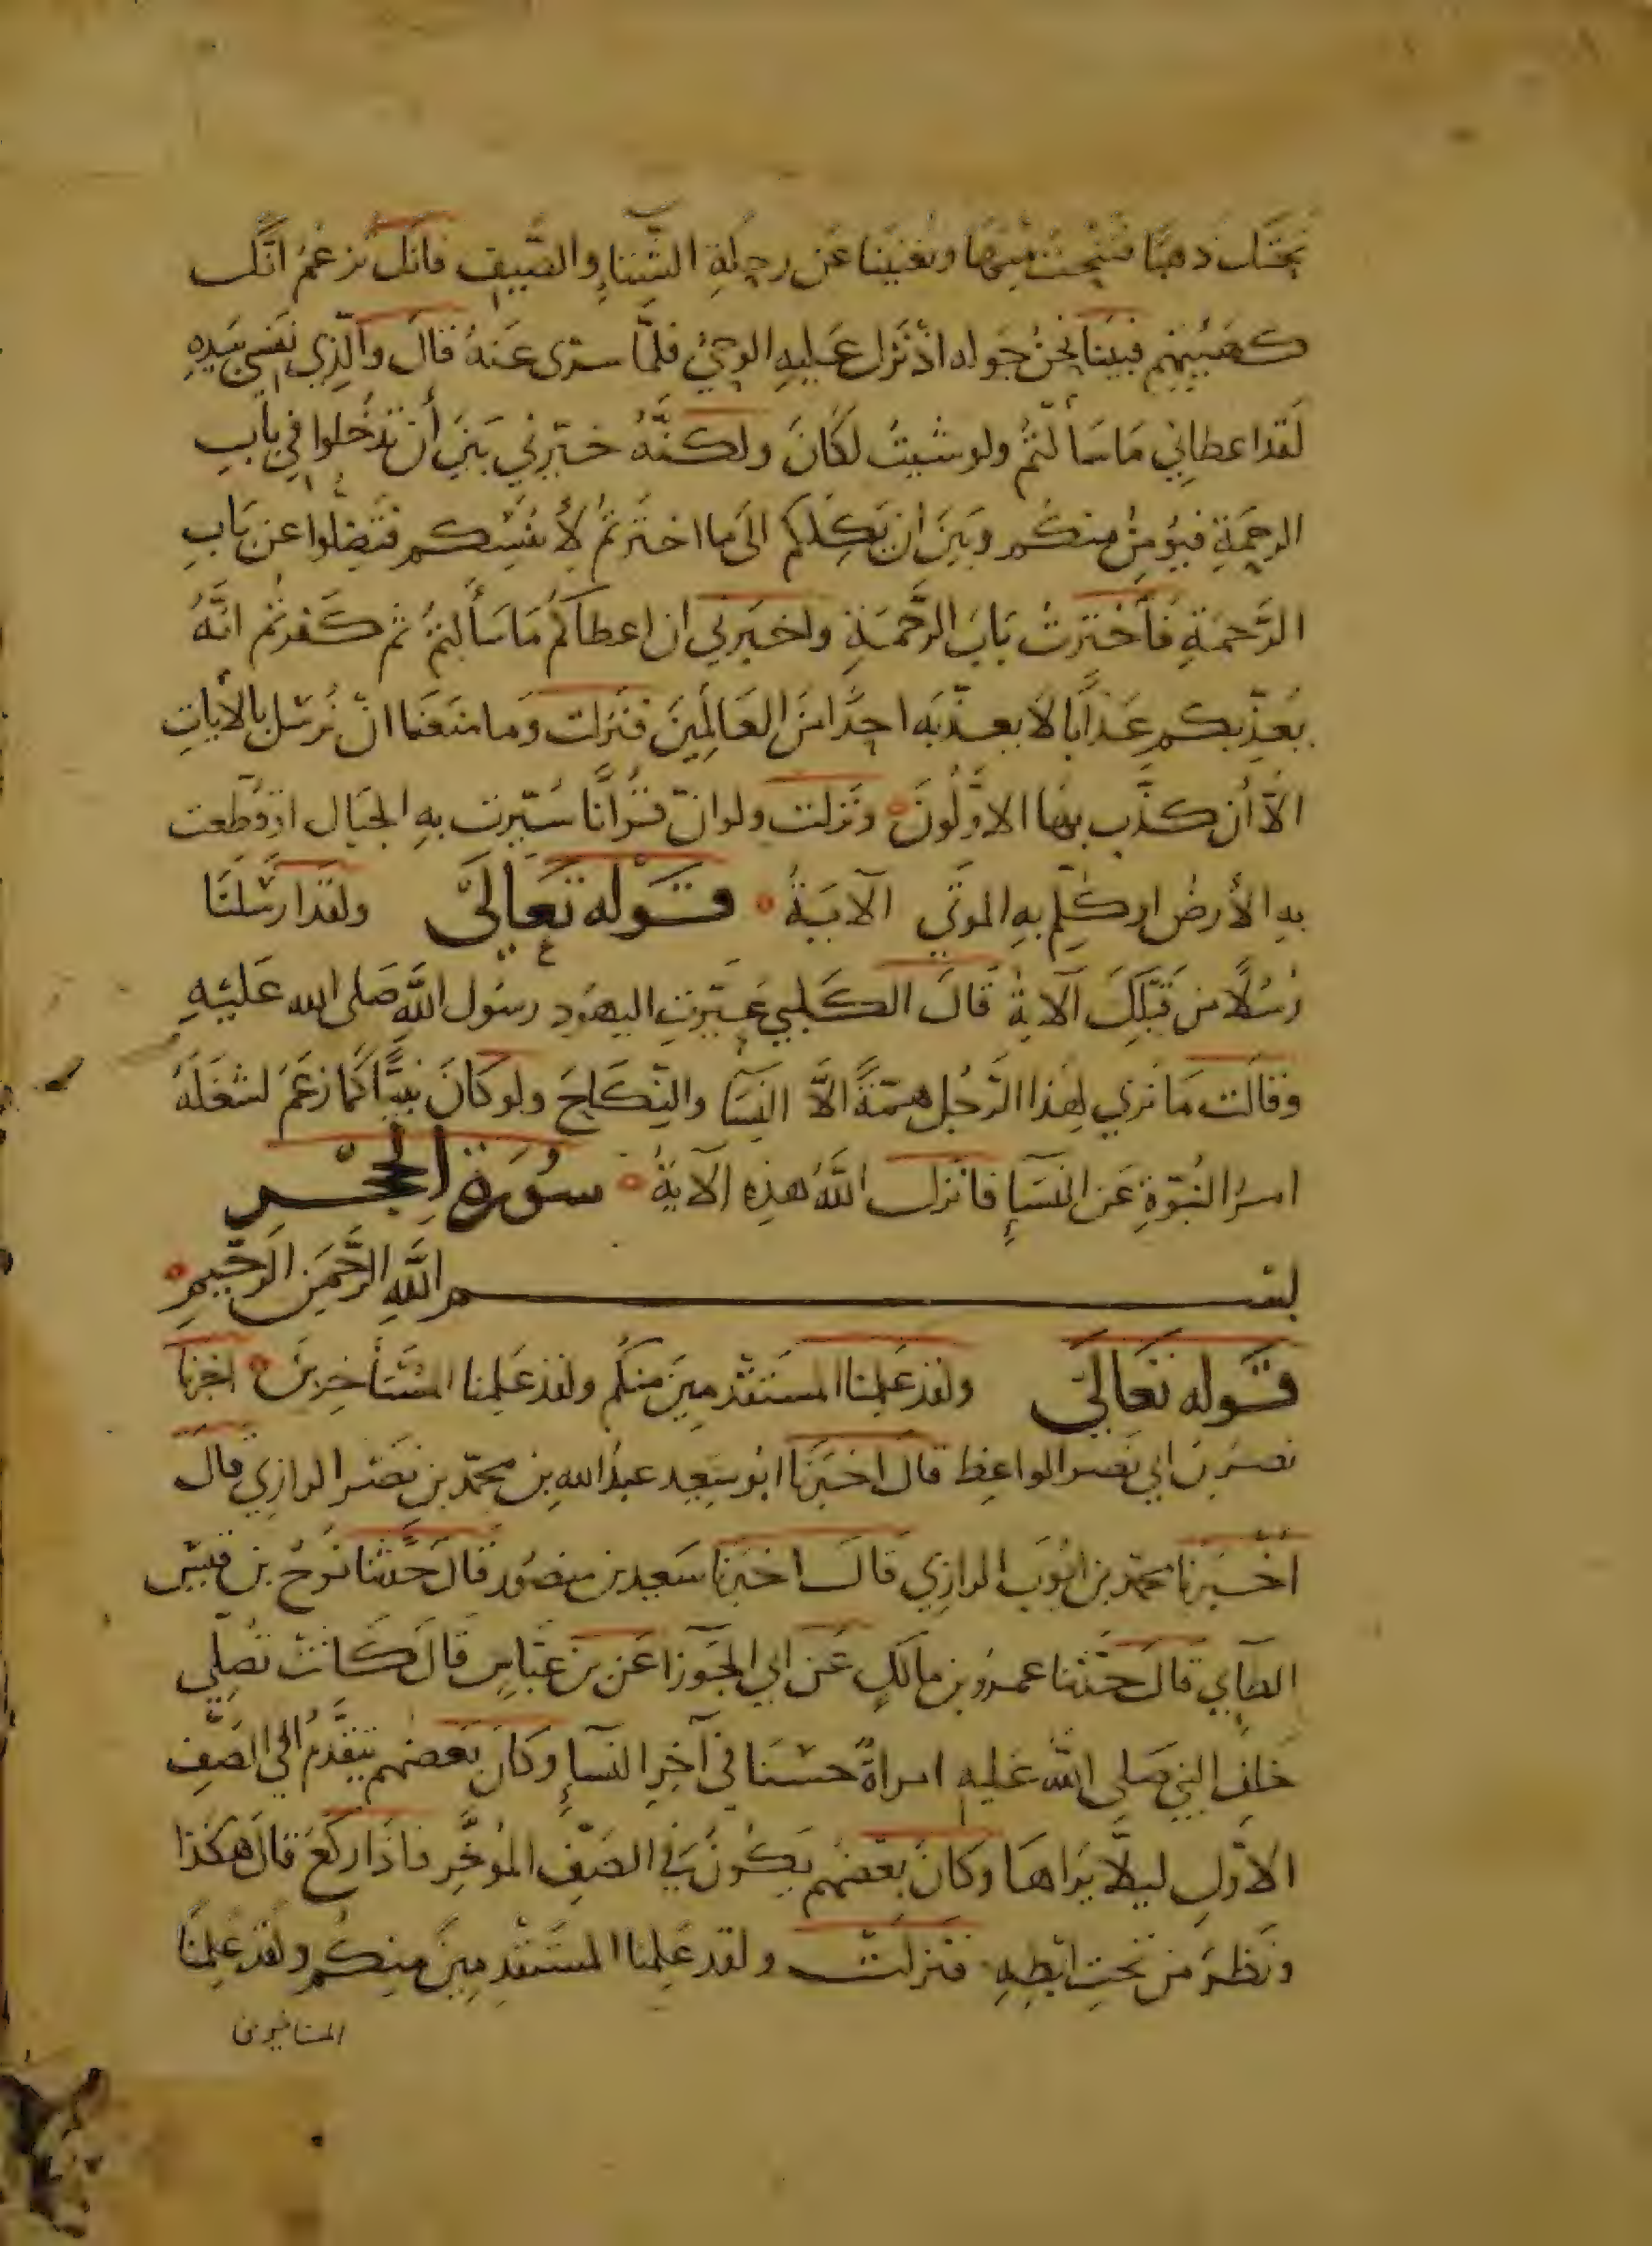 تحتك ذهبا فننحت منها وتغنينا عن رحلة الشتاء والصيف فانك تزعم انك
كهيئتهم فبينا نحن حوله اذ نزل عليه الوحي فلما سرى عنه قال والذي نفسي بيده
لقد اعطاني ما سألتم ولو شيت لكان ولكنه خيرني بين أن تدخلوا في باب
الرحمة فيؤمن منكم وبين ان يكلكم الى ما اخترتم لأنفسكم فتضلوا عن باب
الرحمة فأخترت باب الرحمة واخبرني ان اعطاكم ما سألتم ثم كفرتم انه
يعذبكم عذابا لا يعذبه احدا من العالمين فنزلت وما منعنا ان نرسل بالأيات
الا أن كذب بها الاولون ونزلت ولو ان قرانا سيرت به الجبال او قطعت
به الأرض او كلم به الموتي الآية قوله تعالى ولقد ارسلنا
رسلا من قبلك الآية قال الكلبي عيرت اليهود رسول الله صلى الله عليه
وقالت ما نرى لهذا الرجل همة الا النسآ والنكاح ولو كان نبيا كما زعم لشغله
امر النبوة عن النسآء فانزل الله هذه الآية سورة الحجر
بسم الله الرحمن الرحيم
قوله تعالى ولقد علمنا المستقدمين منكم ولقد علمنا المستأخرين اخبرنا
نصر بن ابي نصر الواعظ قال اخبرنا ابو سعيد عبد الله بن محمد بن نصر الرازي قال
اخبرنا محمد بن ايوب الرازي قال اخبرنا سعيد بن منصور قال حدثنا نوح بن قيس
الطآيي قال حدثنا عمرو بن مالك عن ابي الجوزا عن بن عباس قال كانت تصلي
خلف النبي صلى الله عليه امراة حسنا في آخر النسآء وكان بعضهم يتقدم الى الصف
الاول ليلا يراها وكان بعضهم يكون في الصف المؤخر فاذا ركع قال هكذا
ونظر من تحت ابطه فنزلت ولقد علمنا المستقدمين منكم ولقد علمنا
المستاخرين